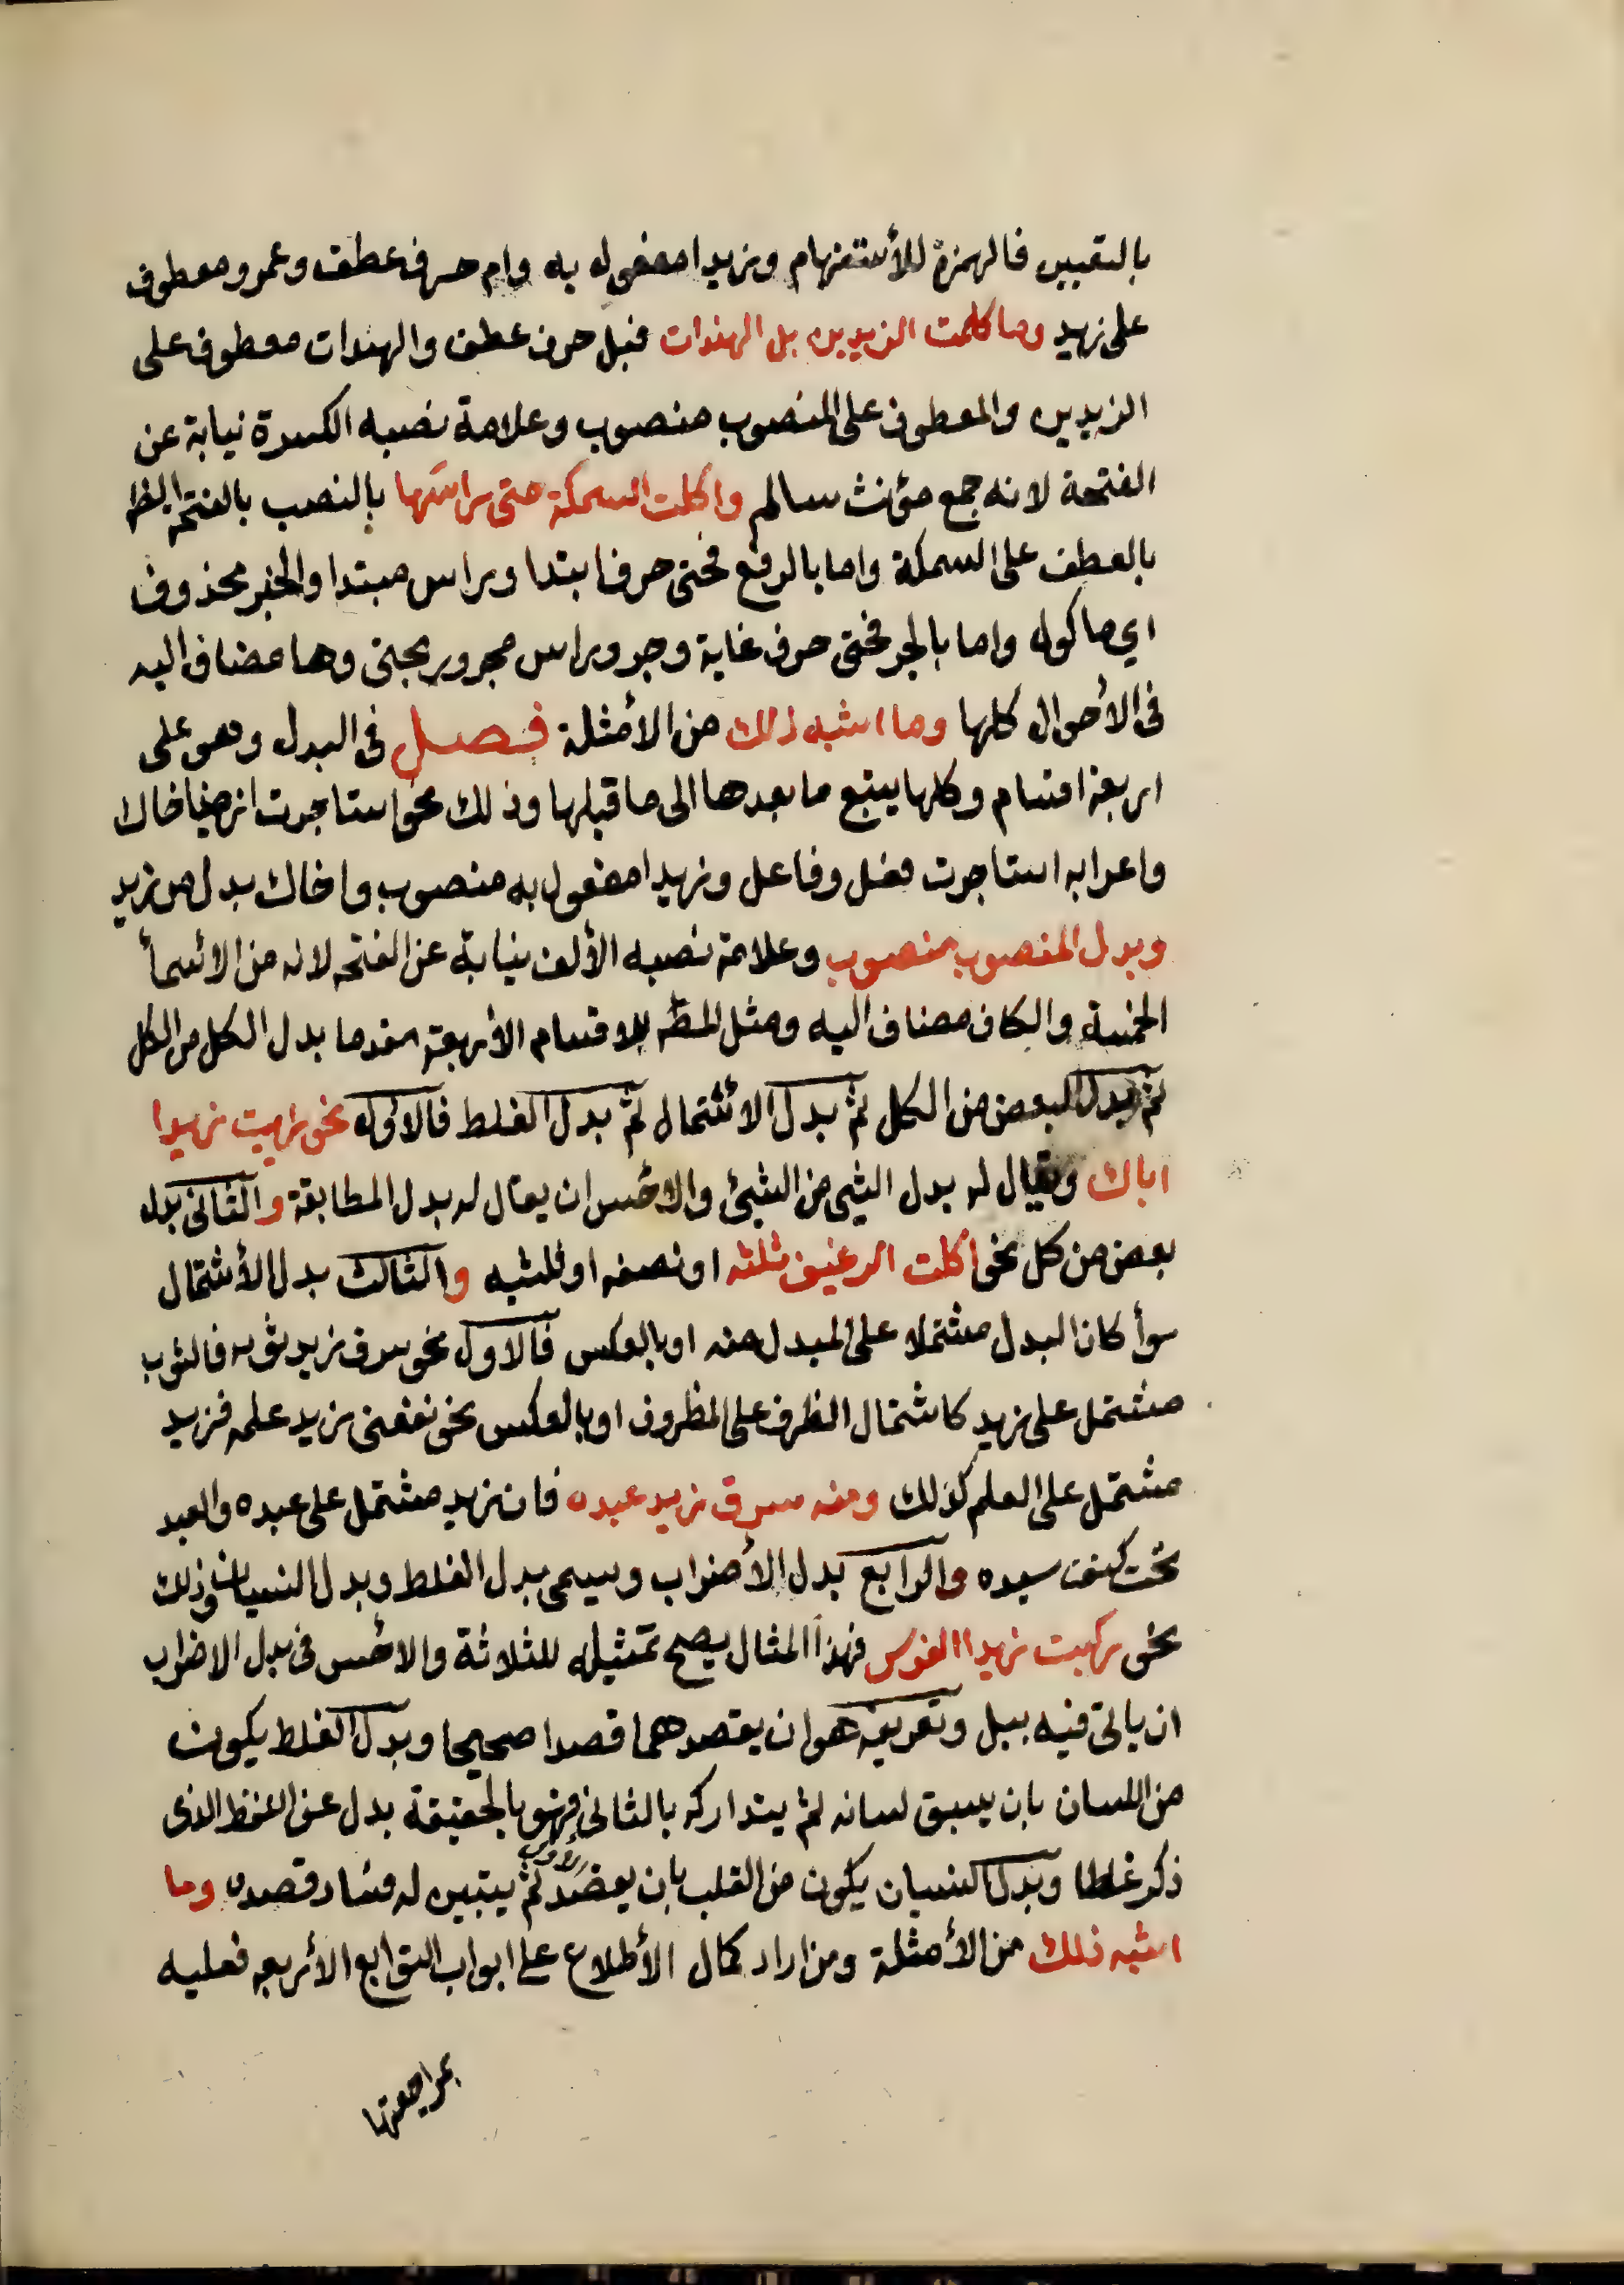 بالتعيين فالهمزة للأستفهام وزيدا مفعول به وام حرف عطف وعمرو معطوف
على زيد وما كلمت الزيدين بل الهندات فبل حرف عطف والهندات معطوف على
الزيدين والمعطوف على المنصوب منصوب وعلامة نصبه الكسرة نيابة عن
الفتحة لانه جمع مؤنث سالم واكلت السمكة حتى راسها بالنصب بالفتحة
بالعطف على السمكة واما بالرفع فحتى حرف ابتدا وراس مبتدا والخبر محذوف
اي ماكول واما بالجر فحتى حرف غاية وجر وراس مجرور بحتى وها مضاف اليه
في الأحوال كلها وما اشبه ذلك من الأمثلة فصل في البدل وهو على
اربعة اقسام وكلها يتبع ما بعدها الى ما قبلها وذلك نحو استاجرت زيدا اخاك
واعرابه استاجرت فعل وفاعل وزيدا مفعول به منصوب واخاك بدل من زيد
وبدل المنصوب منصوب وعلامة نصبه الألف نيابة عن الفتحه لانه من الأسمأ
الخمسة والكاف مضاف اليه ومثل المصَّ للاقسام الأربعة مقدما بدل الكل من الكل
ثم بدل البعض من الكل ثم بدل الاشتمال ثم بدل الغلط فالاول نحو رايت زيدا
اباك ويقال له بدل الشي من الشيئ والاحسن ان يقال له بدل المطابقة والثاني بدل
بعض من كل نحو اكلت الرغيف ثلثه او نصفه او ثلثيه والثالث بدل الأشتمال
سوأ كان البدل مشتملا على المبدل منه او بالعكس فالاول نحو سرق زيد ثوبه فالثوب
مشتمل على زيد كاشتمال الظرف على المظروف او بالعكس نحو نفعني زيد علمه فزيد
مشتمل على العلم كذلك ومنه سرق زيد عبده فان زيد مشتمل على عبده والعبد
تحت كنف سيده والرابع بدل الأضراب ويسمى بدل الغلط وبدل النسيان وذلك
نحو ركبت زيدا الفرس فهذا المثال يصح تمثيله للثلاثة والاحسن في بدل الاضراب
ان ياتي فيه ببل وتعريفه هو ان يقصدهما قصدا صحيحا وبدل الغلط يكون
من اللسان بان يسبق لسانه ثم يتداركه بالثاني فهو بالحقيقة بدل عن اللفظ الذي
ذكر غلطا وبدل النسيان يكون من القلب بان يقصد ثم يتبين له فساد قصده وما
اشبه ذلك من الأمثلة ومن اراد كمال الأطلاع على ابواب التوابع الأربعه فعليه
بمراجعتها